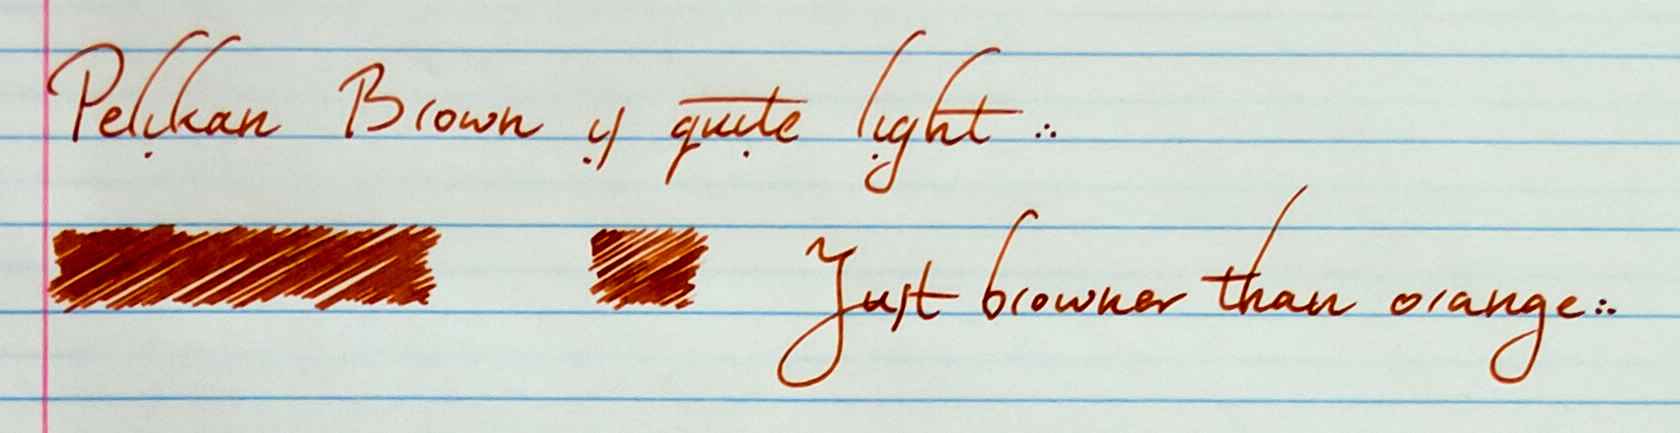 Pelikan Brown is quite light ∴
Just browner than orange ∴